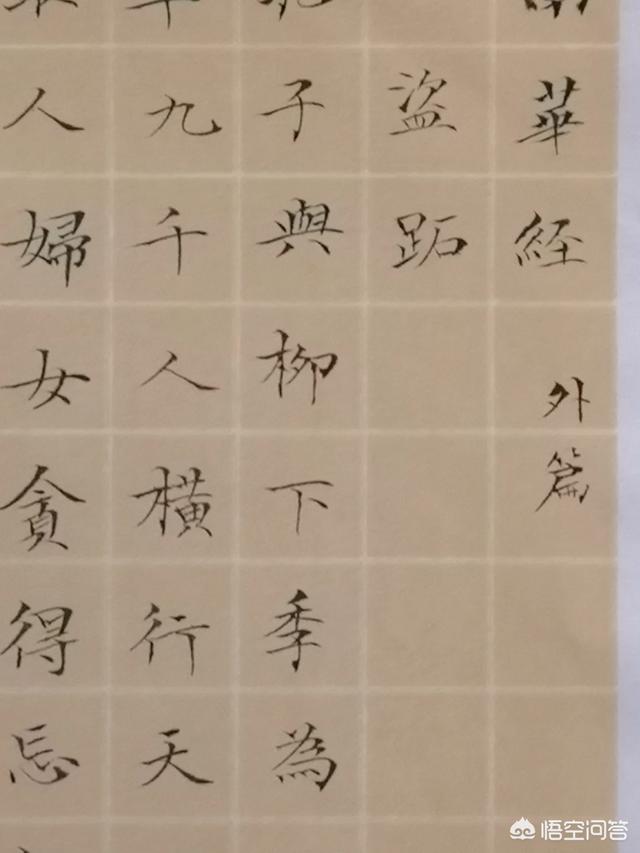 南華經
外篇
盜跖
孔子與柳下季為
卒九千人橫行天
人婦女貪得忘
悟空问答